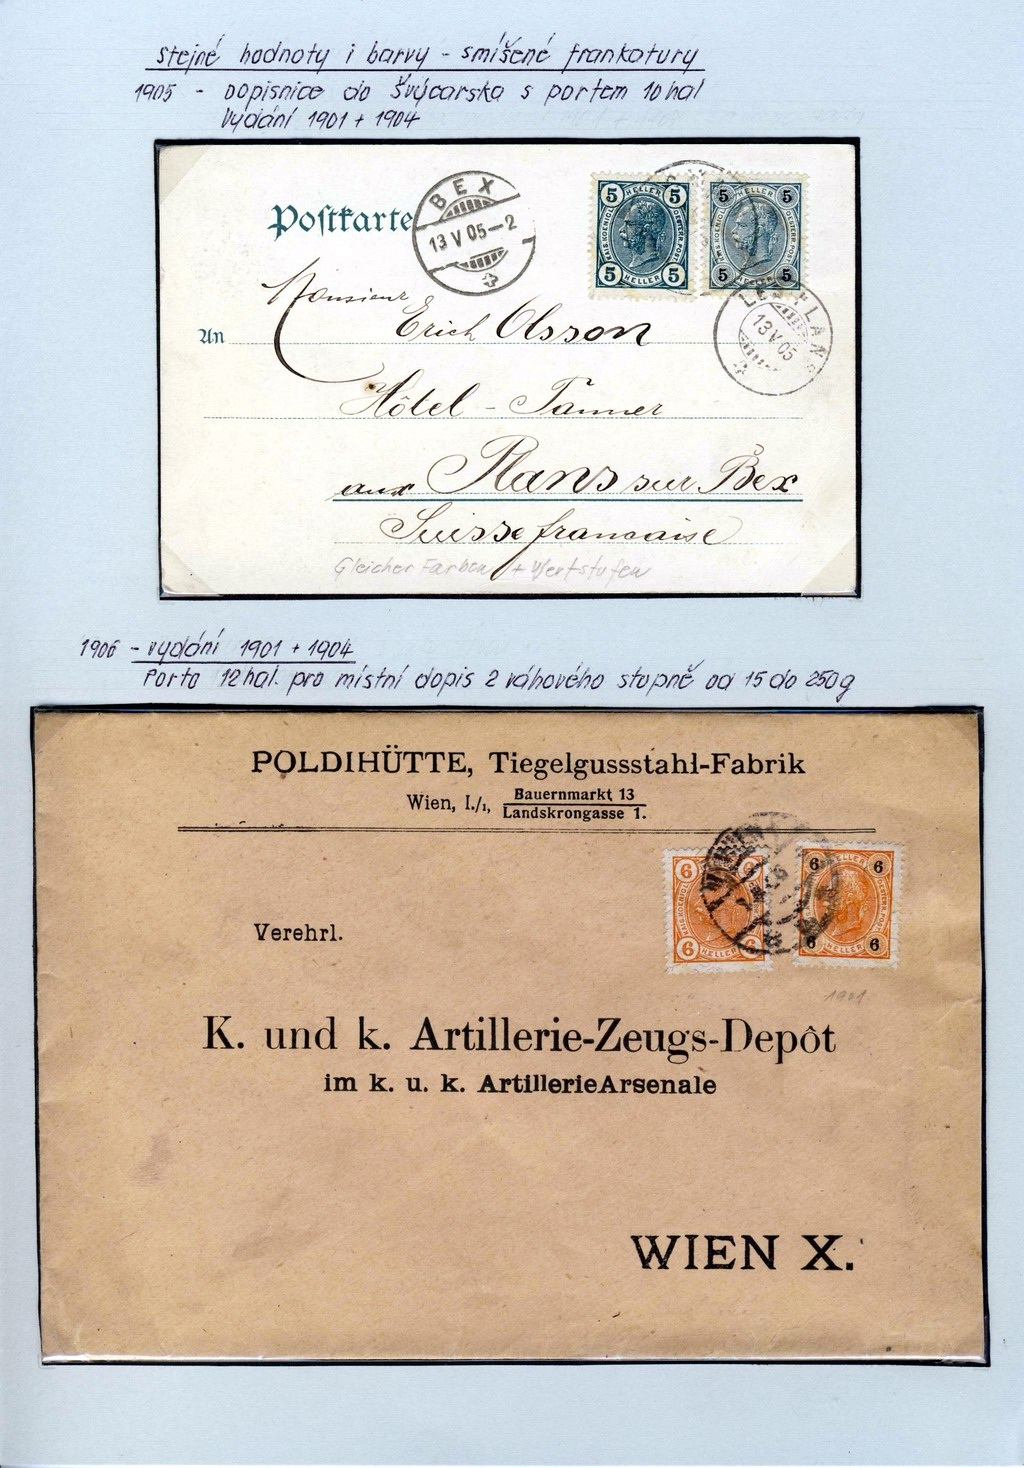 stejné hodnoty i barvy - smíšené frankatury
1905 - dopisnice do Švýcarska s portem 10 hal
Vydání 1901 + 1904
Postkarte
BEX
13 V 05-2
5 HELLER 5
KAIS. KOENIGL. OESTERR. POST
5 HELLER 5
5 HELLER 5
KAIS. KOENIGL. OESTERR. POST
5 HELLER 5
LES PLANS
13 V 05
Monsieur
An Erich Olsson
Hôtel - Tanner
aux Plans sur Bex
Suisse francaise
Gleicher Farben + Wertstufen
1906 - vydání 1901 + 1904
Porto 12 hal. pro místní dopis 2 váhového stupně od 15 do 250 g
POLDIHÜTTE, Tiegelgussstahl-Fabrik
Wien, I./1, Bauernmarkt 13
Landskrongasse 1.
WIEN
6 6
KAIS. KOENIGL.
6 HELLER 6
6 HELLER 6
OESTERR. POST
6 HELLER 6
1901
Verehrl.
K. und k. Artillerie-Zeugs-Depôt
im k. u. k. Artillerie Arsenale
WIEN X.